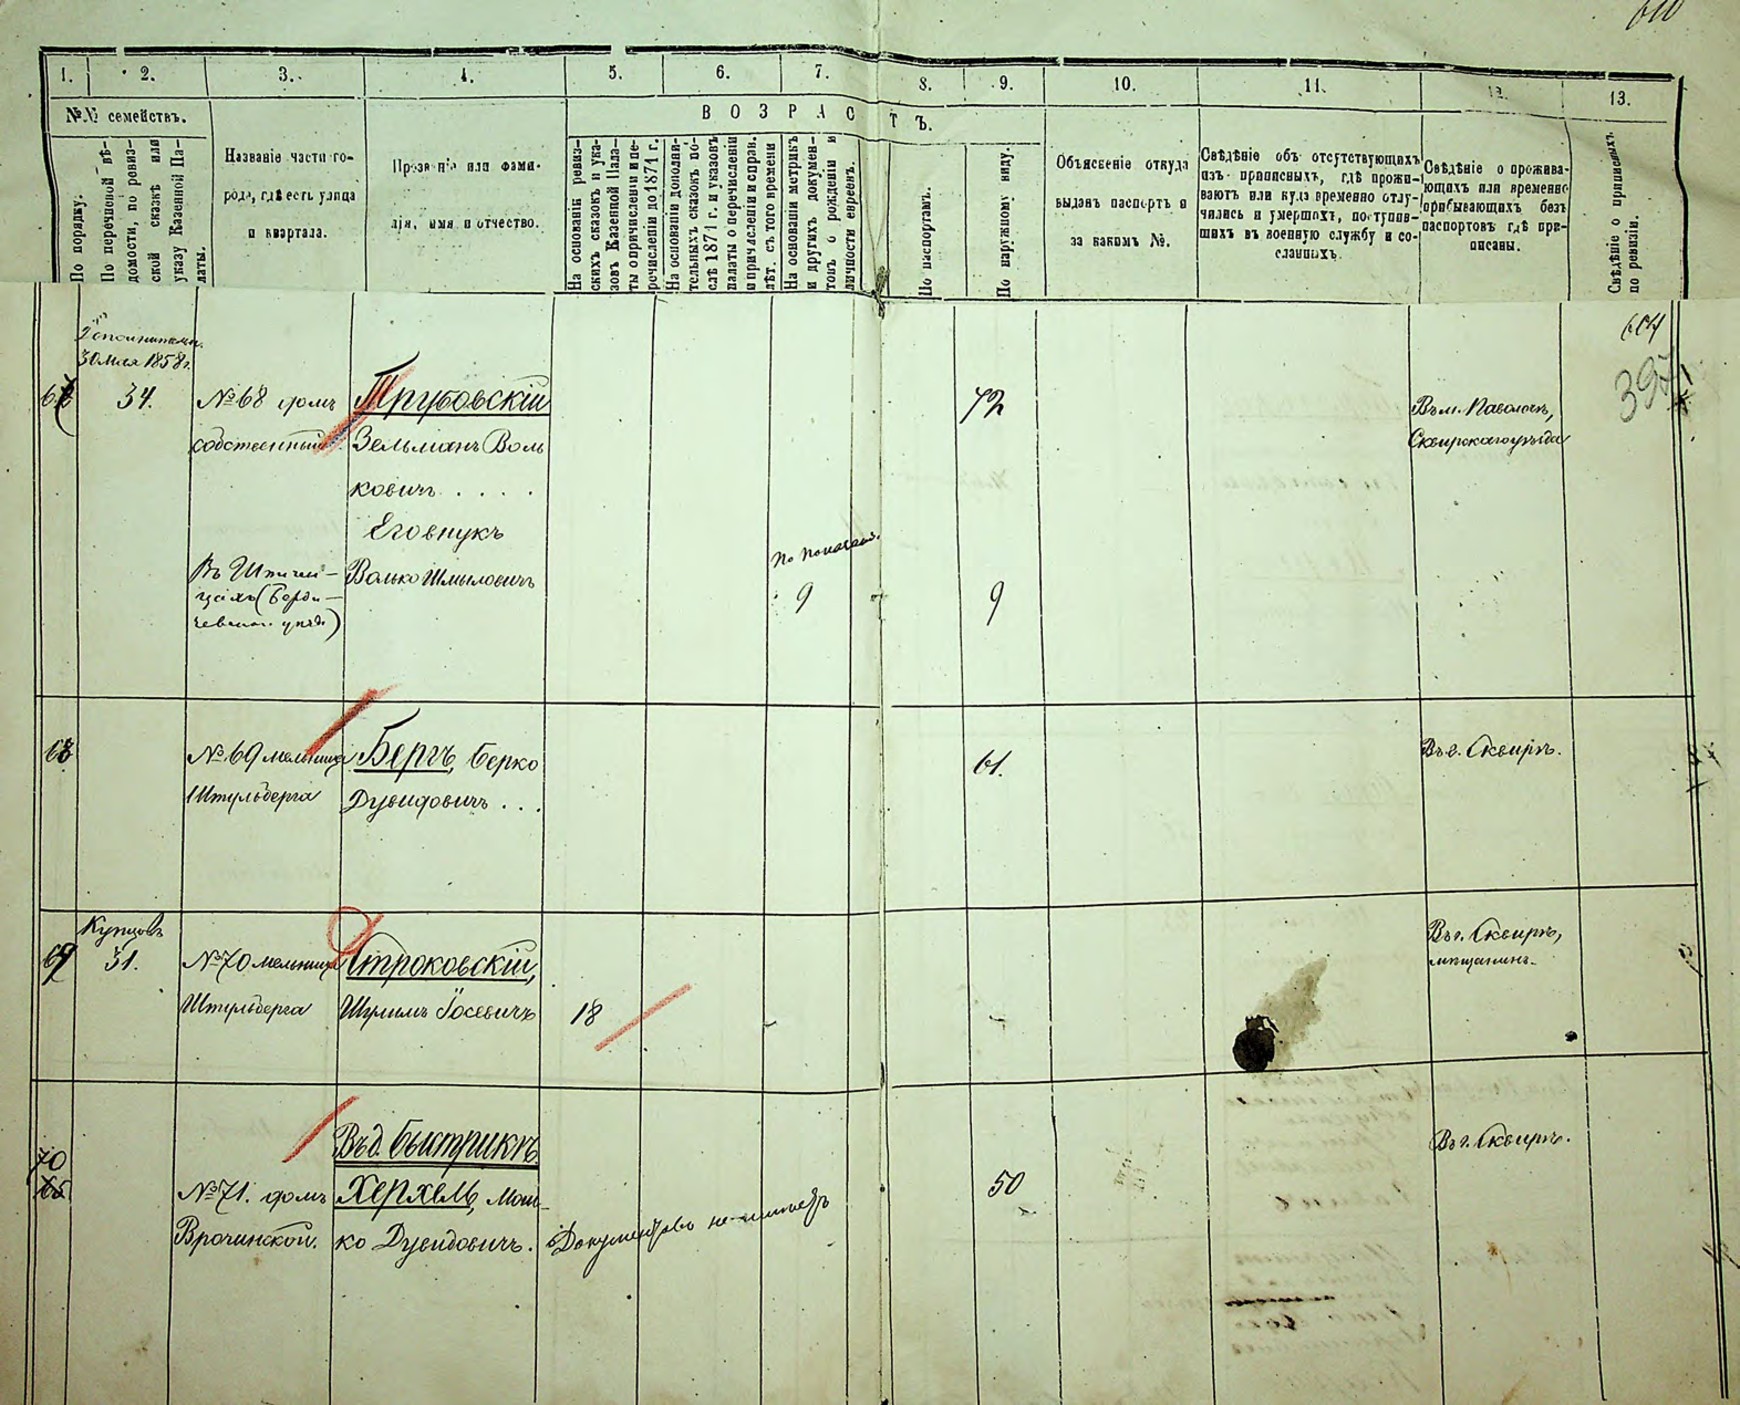 610
1. 2. 3. 4. 5. 6. 7. 8. 9. 10. 11. 12. 13.
№№ семействъ.
ВОЗРАСТЪ.
По порядку.
По перечневой вѣ-
домости, по ревиз-
ской сказкѣ или
указу Казенной Па-
латы.
Названіе части го-
рода, гдѣ есть улица
и квартала.
Прозваніе или фами-
лія, имя и отчество.
На основаніи ревиз-
скихъ сказокъ и ука-
зовъ Казенной Пала-
ты о причисленіи и пе-
речисленіи до 1871 г.
На основаніи дополни-
тельныхъ сказокъ по-
слѣ 1871 г. и указовъ
палаты о перечисленіи
и причисленіи и справ.
лѣт. съ того времени
На основаніи метрикъ
и другихъ докумен-
товъ о рожденіи и
личности евреевъ.
По паспортамъ.
По наружному виду.
Объясненіе откуда
выданъ паспортъ и
за какимъ №.
Свѣдѣніе объ отсутствующихъ
изъ приписныхъ, гдѣ прожи-
ваютъ или куда временно отлу-
чились и умершихъ, поступив-
шихъ въ военную службу и со-
сланныхъ.
Свѣдѣніе о прожива-
ющихъ или временно
прибывающихъ безъ
паспортовъ гдѣ при-
писаны.
Свѣдѣніе о приписныхъ
по ревизіи.
604
397
30 Мая 1858 г.
34.
№ 68 домъ
собственный
Трубовскій
Зельманъ Воль
ковичъ . . . .
72
Въ м. Паволочѣ,
Сквирскаго уѣзда
Его внукъ
Волько Шмыловичъ
По показан.
9
9
68
№ 69 мельница
Штульберга
Бергъ, Берко
Дувидовичъ . . .
61.
Въ г. Сквирѣ.
69
Купцовъ
31.
№ 70 мельница
Штульберга
Строковскій,
Шулимъ Іосевичъ
18
Въ г. Сквирѣ,
мѣщанинъ.
70
№ 71. домъ
Врочинской.
Въ д. Быстрикѣ
Херхель, Мош-
ко Дувидовичъ.
Документовъ не имѣетъ
50
Въ г. Сквирѣ.